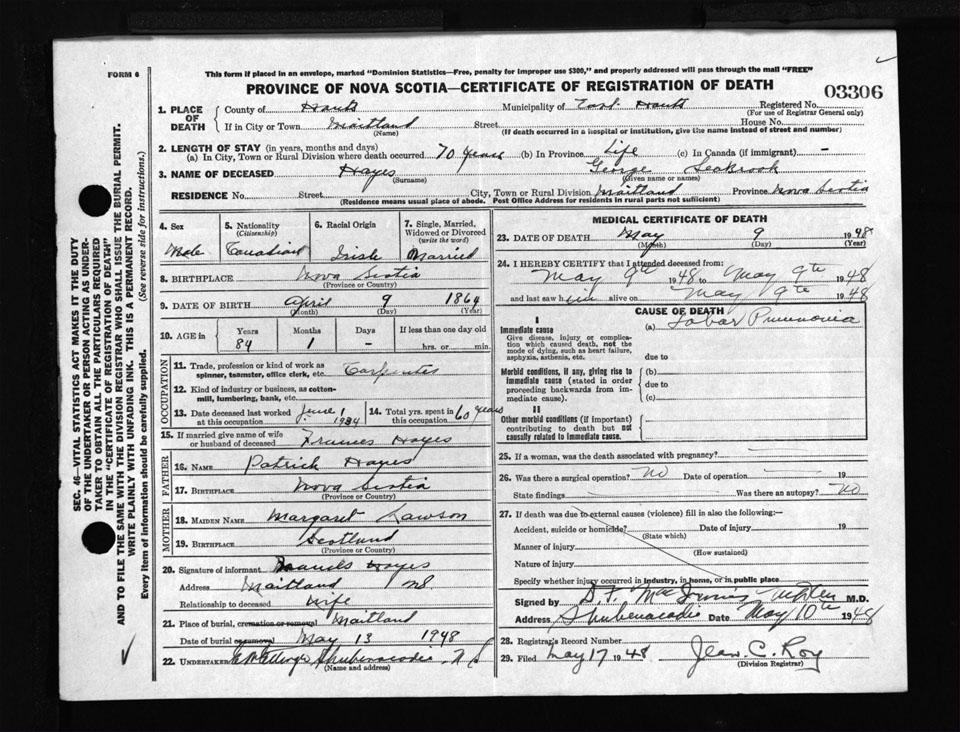 FORM 6
This form if placed in an envelope, marked "Dominion Statistics—Free, penalty for improper use $300," and properly addressed will pass through the mail "FREE"
PROVINCE OF NOVA SCOTIA—CERTIFICATE OF REGISTRATION OF DEATH
03306
1. PLACE OF DEATH
County of Hants Municipality of East Hants Registered No.
(For use of Registrar General only)
If in City or Town Maitland Street House No.
(Name) (If death occurred in a hospital or institution, give the name instead of street and number)
2. LENGTH OF STAY (in years, months and days)
(a) In City, Town or Rural Division where death occurred 70 years (b) In Province Life (c) In Canada (if immigrant) -
3. NAME OF DECEASED Hayes George Seabrook
(Surname) (Given name or names)
RESIDENCE No. Street City, Town or Rural Division Maitland Province Nova Scotia
(Residence means usual place of abode. Post Office Address for residents in rural parts not sufficient)
SEC. 46—VITAL STATISTICS ACT MAKES IT THE DUTY
OF THE UNDERTAKER OR PERSON ACTING AS UNDER-
TAKER TO OBTAIN ALL THE PARTICULARS REQUIRED
IN THE "CERTIFICATE OF REGISTRATION OF DEATH"
AND TO FILE THE SAME WITH THE DIVISION REGISTRAR WHO SHALL ISSUE THE BURIAL PERMIT.
WRITE PLAINLY WITH UNFADING INK. THIS IS A PERMANENT RECORD.
Every item of information should be carefully supplied. (See reverse side for instructions.)
4. Sex
Male
5. Nationality
(Citizenship)
Canadian
6. Racial Origin
Irish
7. Single, Married,
Widowed or Divorced
(write the word)
Married
8. BIRTHPLACE Nova Scotia
(Province or Country)
9. DATE OF BIRTH April 9 1864
(Month) (Day) (Year)
10. AGE in Years Months Days If less than one day old
84 1 - hrs. or min.
OCCUPATION
11. Trade, profession or kind of work as
spinner, teamster, office clerk, etc. Carpenter
12. Kind of industry or business, as cotton-
mill, lumbering, bank, etc.
13. Date deceased last worked
at this occupation June 1 1934
14. Total yrs. spent in
this occupation 60 years
15. If married give name of wife
or husband of deceased Frances Hayes
FATHER
16. NAME Patrick Hayes
17. BIRTHPLACE Nova Scotia
(Province or Country)
MOTHER
18. MAIDEN NAME Margaret Lawson
19. BIRTHPLACE Scotland
(Province or Country)
20. Signature of informant Frances Hayes
Address Maitland NS
Relationship to deceased Wife
21. Place of burial, cremation or removal Maitland
Date of burial or removal May 13 1948
22. UNDERTAKER Shubenacadie, N S
(Name and address)
MEDICAL CERTIFICATE OF DEATH
23. DATE OF DEATH May 9 1948
(Month) (Day) (Year)
24. I HEREBY CERTIFY that I attended deceased from:
May 9th 1948 to May 9th 1948
and last saw him alive on May 9th 1948
CAUSE OF DEATH
I
Immediate cause
Give disease, injury or complica-
tion which caused death, not the
mode of dying, such as heart failure,
asphyxia, asthenia, etc.
(a) Lobar Pneumonia
due to
Morbid conditions, if any, giving rise to
immediate cause (stated in order
proceeding backwards from im-
mediate cause).
(b)
due to
(c)
II
Other morbid conditions (if important)
contributing to death but not
causally related to immediate cause.
25. If a woman, was the death associated with pregnancy?
26. Was there a surgical operation? NO Date of operation 19
State findings Was there an autopsy? NO
27. If death was due to external causes (violence) fill in also the following:—
Accident, suicide or homicide? Date of injury 19
(State which)
Manner of injury
(How sustained)
Nature of injury
Specify whether injury occurred in industry, in home, or in public place
Signed by D.F. M.D.
Address Shubenacadie Date May 10th 1948
28. Registrar's Record Number
29. Filed May 17 1948 Jean. C. Roy
(Division Registrar)